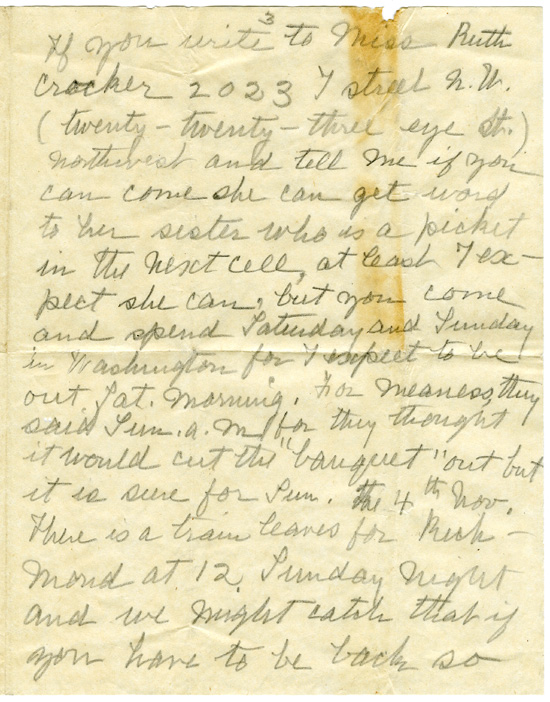 3
If you write to Miss Ruth
Crocker 2023 I street N.W.
(twenty-twenty-three eye St.)
Northwest and tell me if you
can come she can get word
to her sister who is a picket
in the next cell, at least I ex-
pect she can, but you come
and spend Saturday and Sunday
in Washington for I expect to be
out Sat. morning. For meaness they
said Sun. a.m. for they thought
it would cut the "banquet" out but
it is sure for Sun. the 4th Nov.
There is a train leaves for Rich-
mond at 12 Sunday night
and we might catch that if
you have to be back so